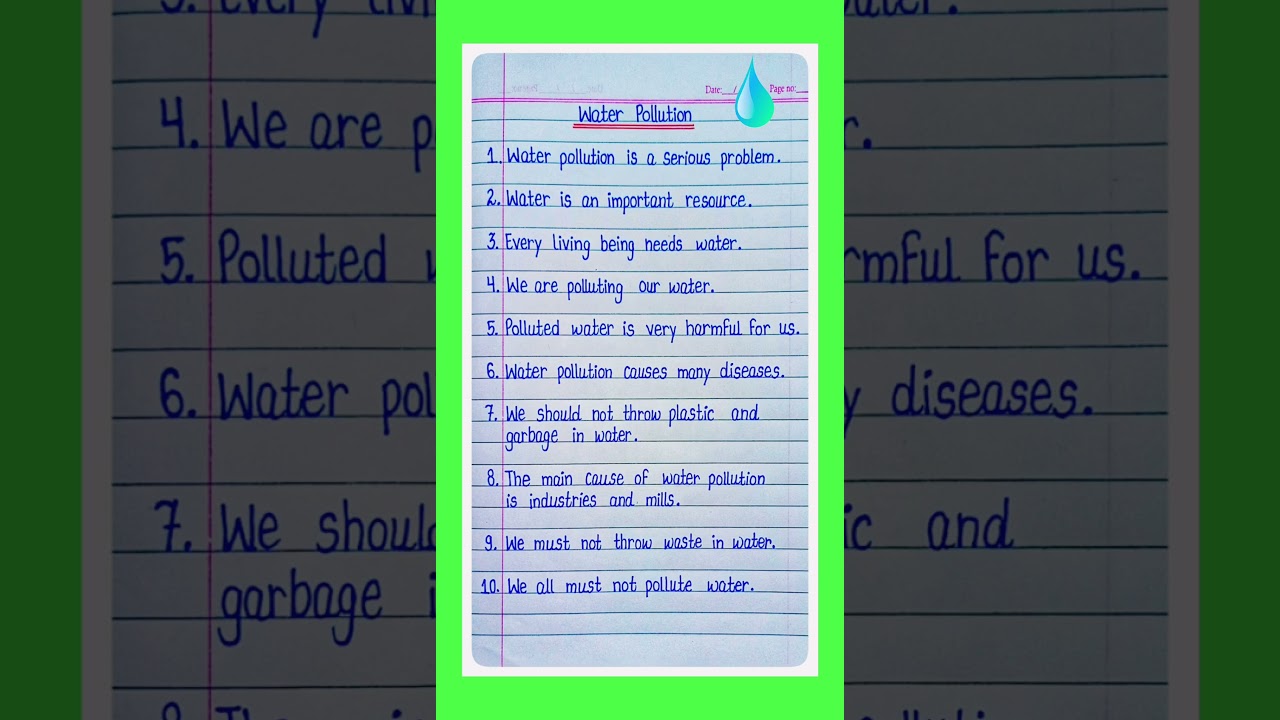 Date:__/ Page no:__
Water Pollution
1. Water pollution is a serious problem.
2. Water is an important resource.
3. Every living being needs water.
4. We are polluting our water.
5. Polluted water is very harmful for us.
6. Water pollution causes many diseases.
7. We should not throw plastic and
garbage in water.
8. The main cause of water pollution
is industries and mills.
9. We must not throw waste in water.
10. We all must not pollute water.
4. We are p
5. Polluted
rmful for us.
6. Water pol
y diseases.
7. We shoul
ic and
garbage i